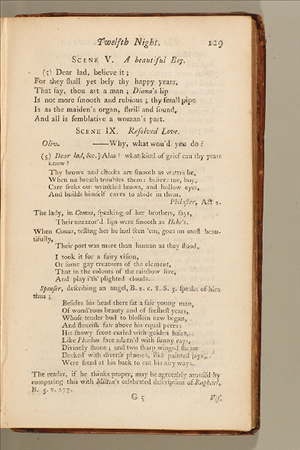 Twelfth Night. 129
SCENE V. A beautiful Boy.
(5) Dear lad, believe it;
For they shall yet bely thy happy years,
That say, thou art a man; Diana's lip
Is not more smooth and rubious; thy small pipe
Is as the maiden's organ, shrill and sound,
And all is semblative a woman's part.
SCENE IX. Resolved Love.
Oliv. ——Why, what wou'd you do?
(5) Dear lad, &c.] Alas! what kind of grief can thy years
know?
Thy brows and cheeks are smooth as waters be,
When no breath troubles them: believe me, boy,
Care seeks out wrinkled brows, and hollow eyes,
And builds himself caves to abide in them.
Philaster, Act 2.
The lady, in Comus, speaking of her brothers, says,
Their unrazor'd lips were smooth as Hebe's.
When Comus, telling her he had seen 'em, goes on most beau-
tifully,
Their port was more than human as they stood,
I took it for a fairy vision,
Of some gay creatures of the element,
That in the colours of the rainbow live,
And play i'th' plighted clouds.
Spenser, describing an angel, B. 2. c. 8. S. 5. speaks of him
thus;
Besides his head there sat a fair young man,
Of wond'rous beauty and of freshest years,
Whose tender bud to blossom new began,
And flourish fair above his equal peers:
His snowy front curled with golden hairs,
Like Phœbus face adorn'd with sunny rays,
Divinely shone; and two sharp winged shears
Decked with diverse plumes, like painted jays,
Were fixed at his back to cut his airy ways.
The reader, if he thinks proper, may be agreeably amused by
comparing this with Milton's celebrated description of Raphael,
B. 5. v. 277.
G 5